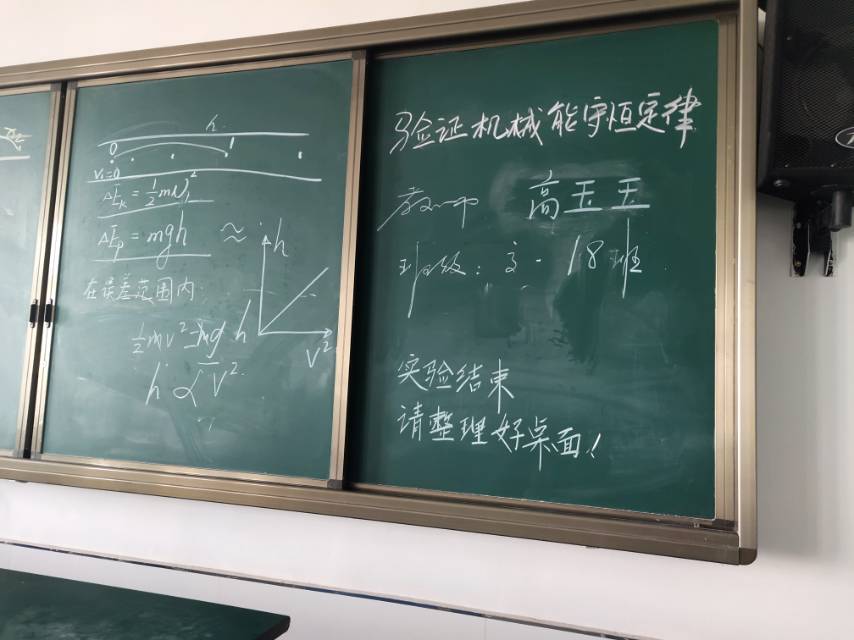 h
0
1
V₁=0
ΔEₖ = ½mv₁²
ΔEₚ = mgh ≈
h
V²
在误差范围内
½mv²=mgh
h∝V²
验证机械能守恒定律
教师 高玉玉
班级：高一 18班
实验结束
请整理好桌面！